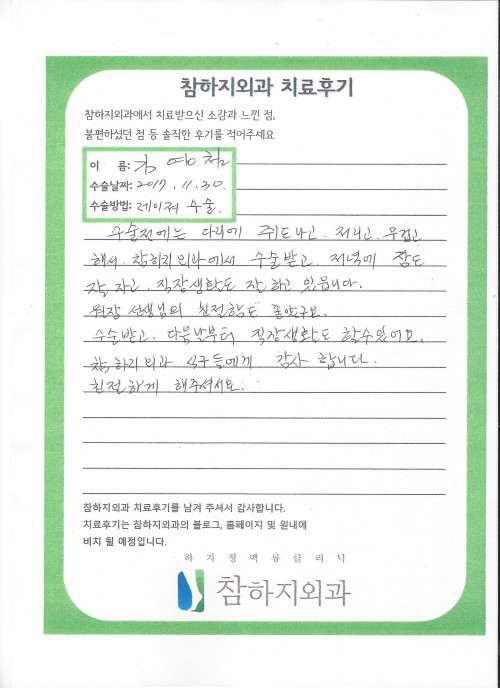 참하지외과 치료후기
참하지외과에서 치료받으신 소감과 느낀 점,
불편하셨던 점 등 솔직한 후기를 적어주세요
이 름: 김
수술날짜: 2017. 11. 30.
수술방법: 레이져 수술.
수술전에는 다리에 쥐도나고. 저리고. 무겁고
해서. 참하지외과에서 수술받고. 저녁에 잠도
잘 자고. 직장생활도 잘 하고 있읍니다.
원장 선생님의 친절함도 좋았구요.
수술받고. 다음날부터 직장생활도 할수있어요.
참.하지외과 식구들에게 감사 합니다.
친절하게 해주셔서요.
참하지외과 치료후기를 남겨 주셔서 감사합니다.
치료후기는 참하지외과의 블로그, 홈페이지 및 원내에
비치 될 예정입니다.
하지정맥류클리닉
참하지외과